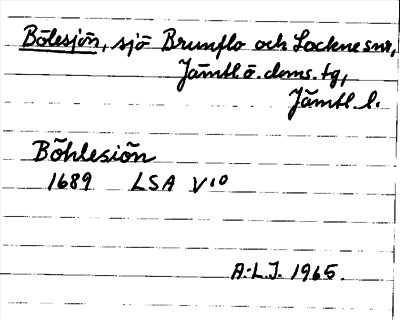 Bölesjön, sjö Brunflo och Lockne snr,
Jämtl. ö. doms. tg,
Jämtl. l.
Böhlesiön
1689 LSA V10
A.L.J. 1965.